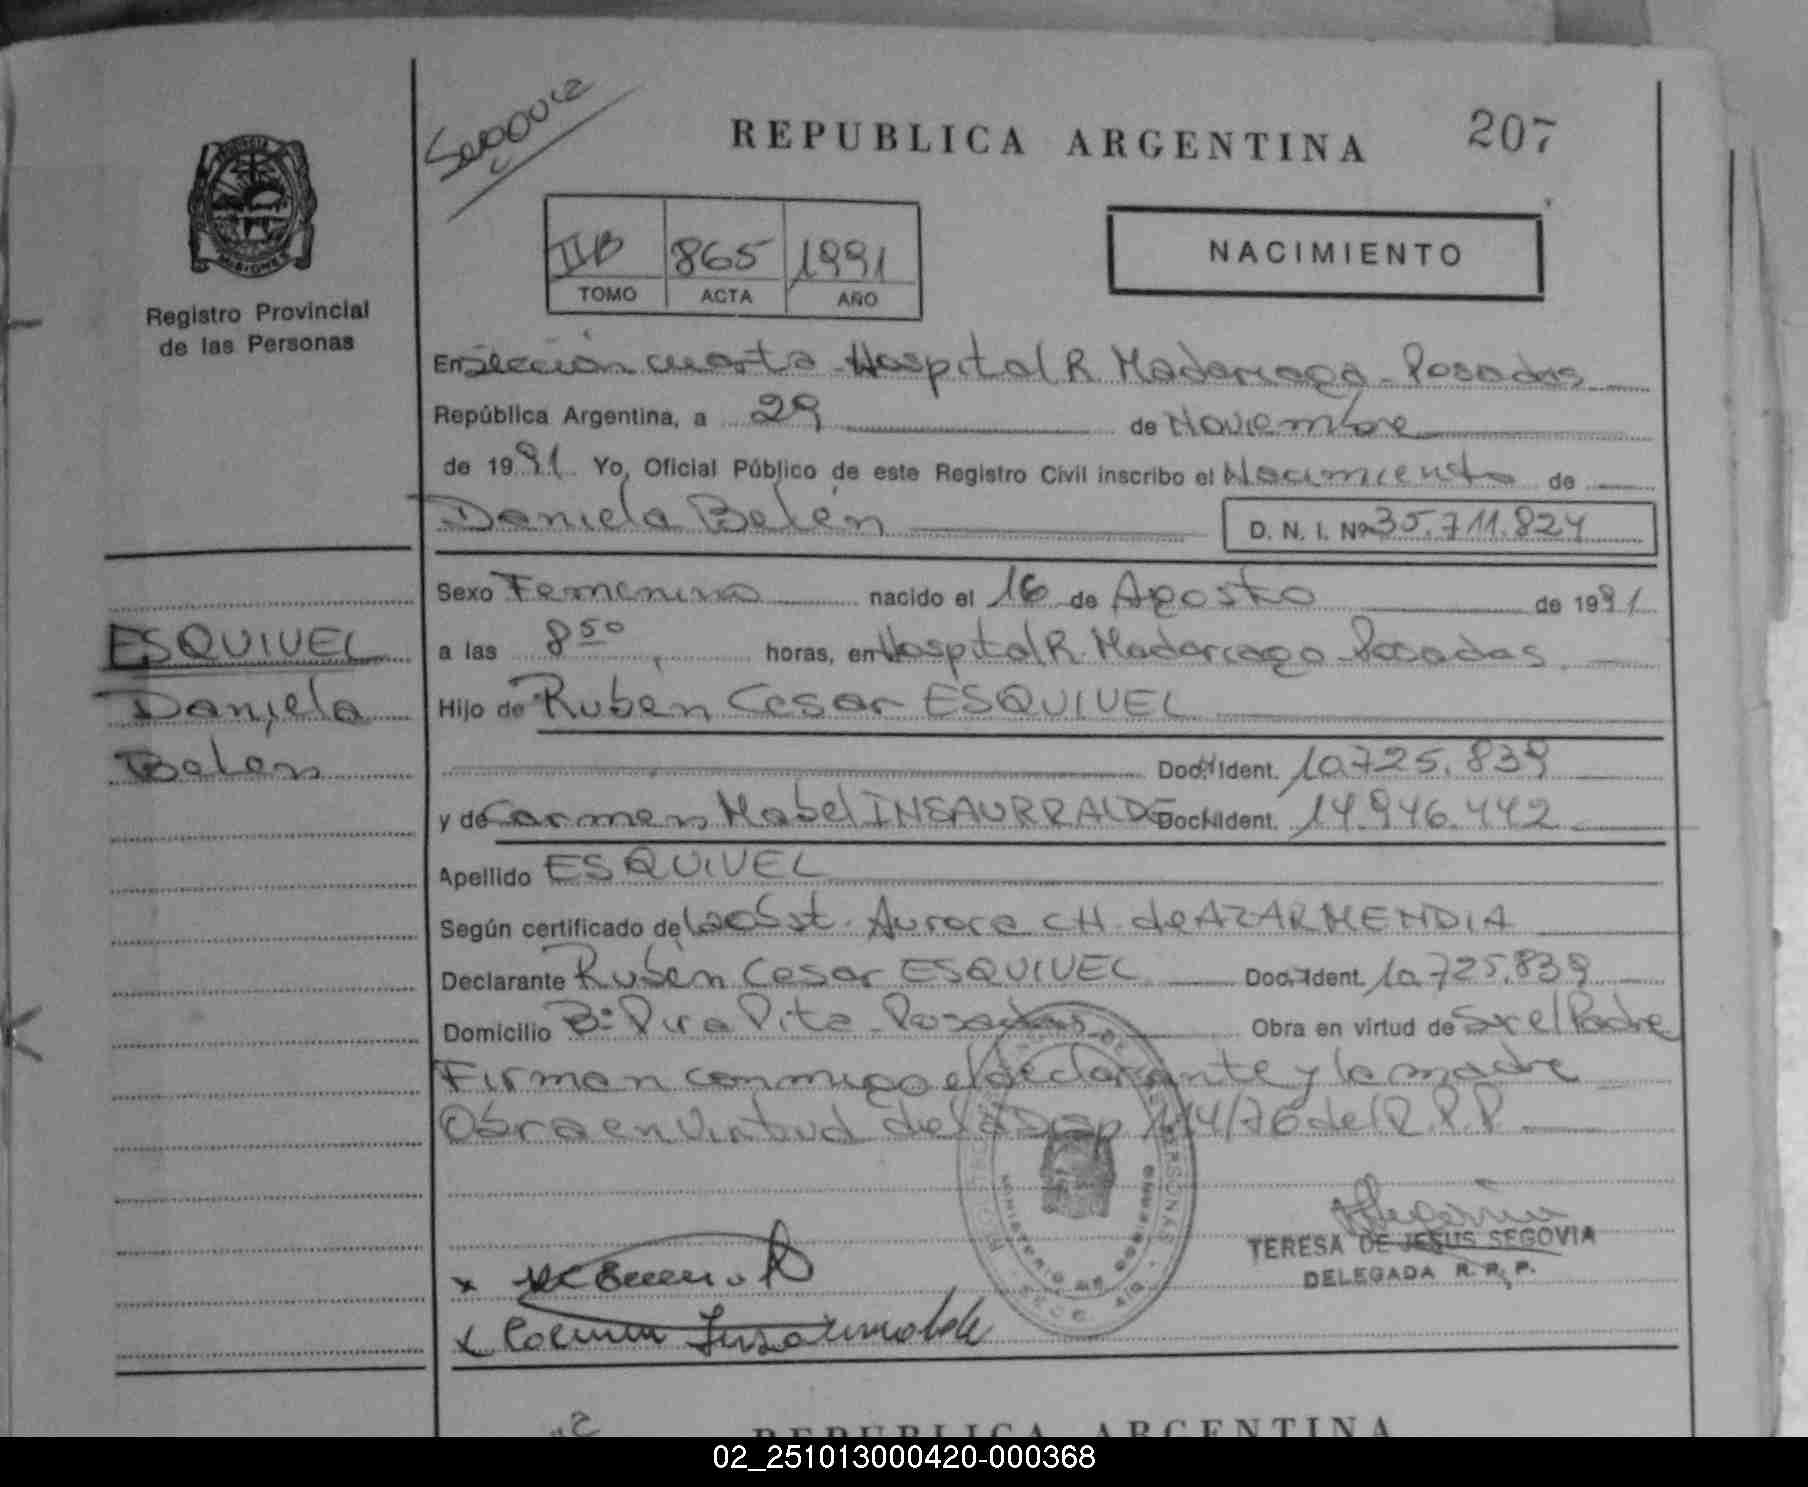 REPUBLICA ARGENTINA 207
IIB 865 1991
TOMO ACTA AÑO
NACIMIENTO
PROVINCIA
MISIONES
Registro Provincial
de las Personas
En sección cuarta - Hospital R Madariaga - Posadas
República Argentina, a 29 de Noviembre
de 1991 Yo, Oficial Público de este Registro Civil inscribo el Nacimiento de
Daniela Belén D. N. I. Nº 35.711.824
Sexo Femenino nacido el 16 de Agosto de 1991
a las 8 50 horas, en Hospital R. Madariaga - Posadas
Hijo de Rubén Cesar ESQUIVEL
Doc. Ident. 10.725.839
y de Carmen Mabel INSAURRALDE Doc. Ident. 14.946.442
Apellido ESQUIVEL
Según certificado de la obst. Aurora CH. de AZARMENDIA
Declarante Rubén Cesar ESQUIVEL Doc. Ident. 10.725.839
Domicilio Bº Pira Pita - Posadas Obra en virtud de Ser el Padre
Firman conmigo el declarante y la madre
Obra en Virtud de la Disp 114/76 del R.P.P.
ESQUIVEL
Daniela
Belén
TERESA DE JESUS SEGOVIA
DELEGADA R. P. P.
x
x Carmen Insaurralde
REPUBLICA ARGENTINA
02_251013000420-000368